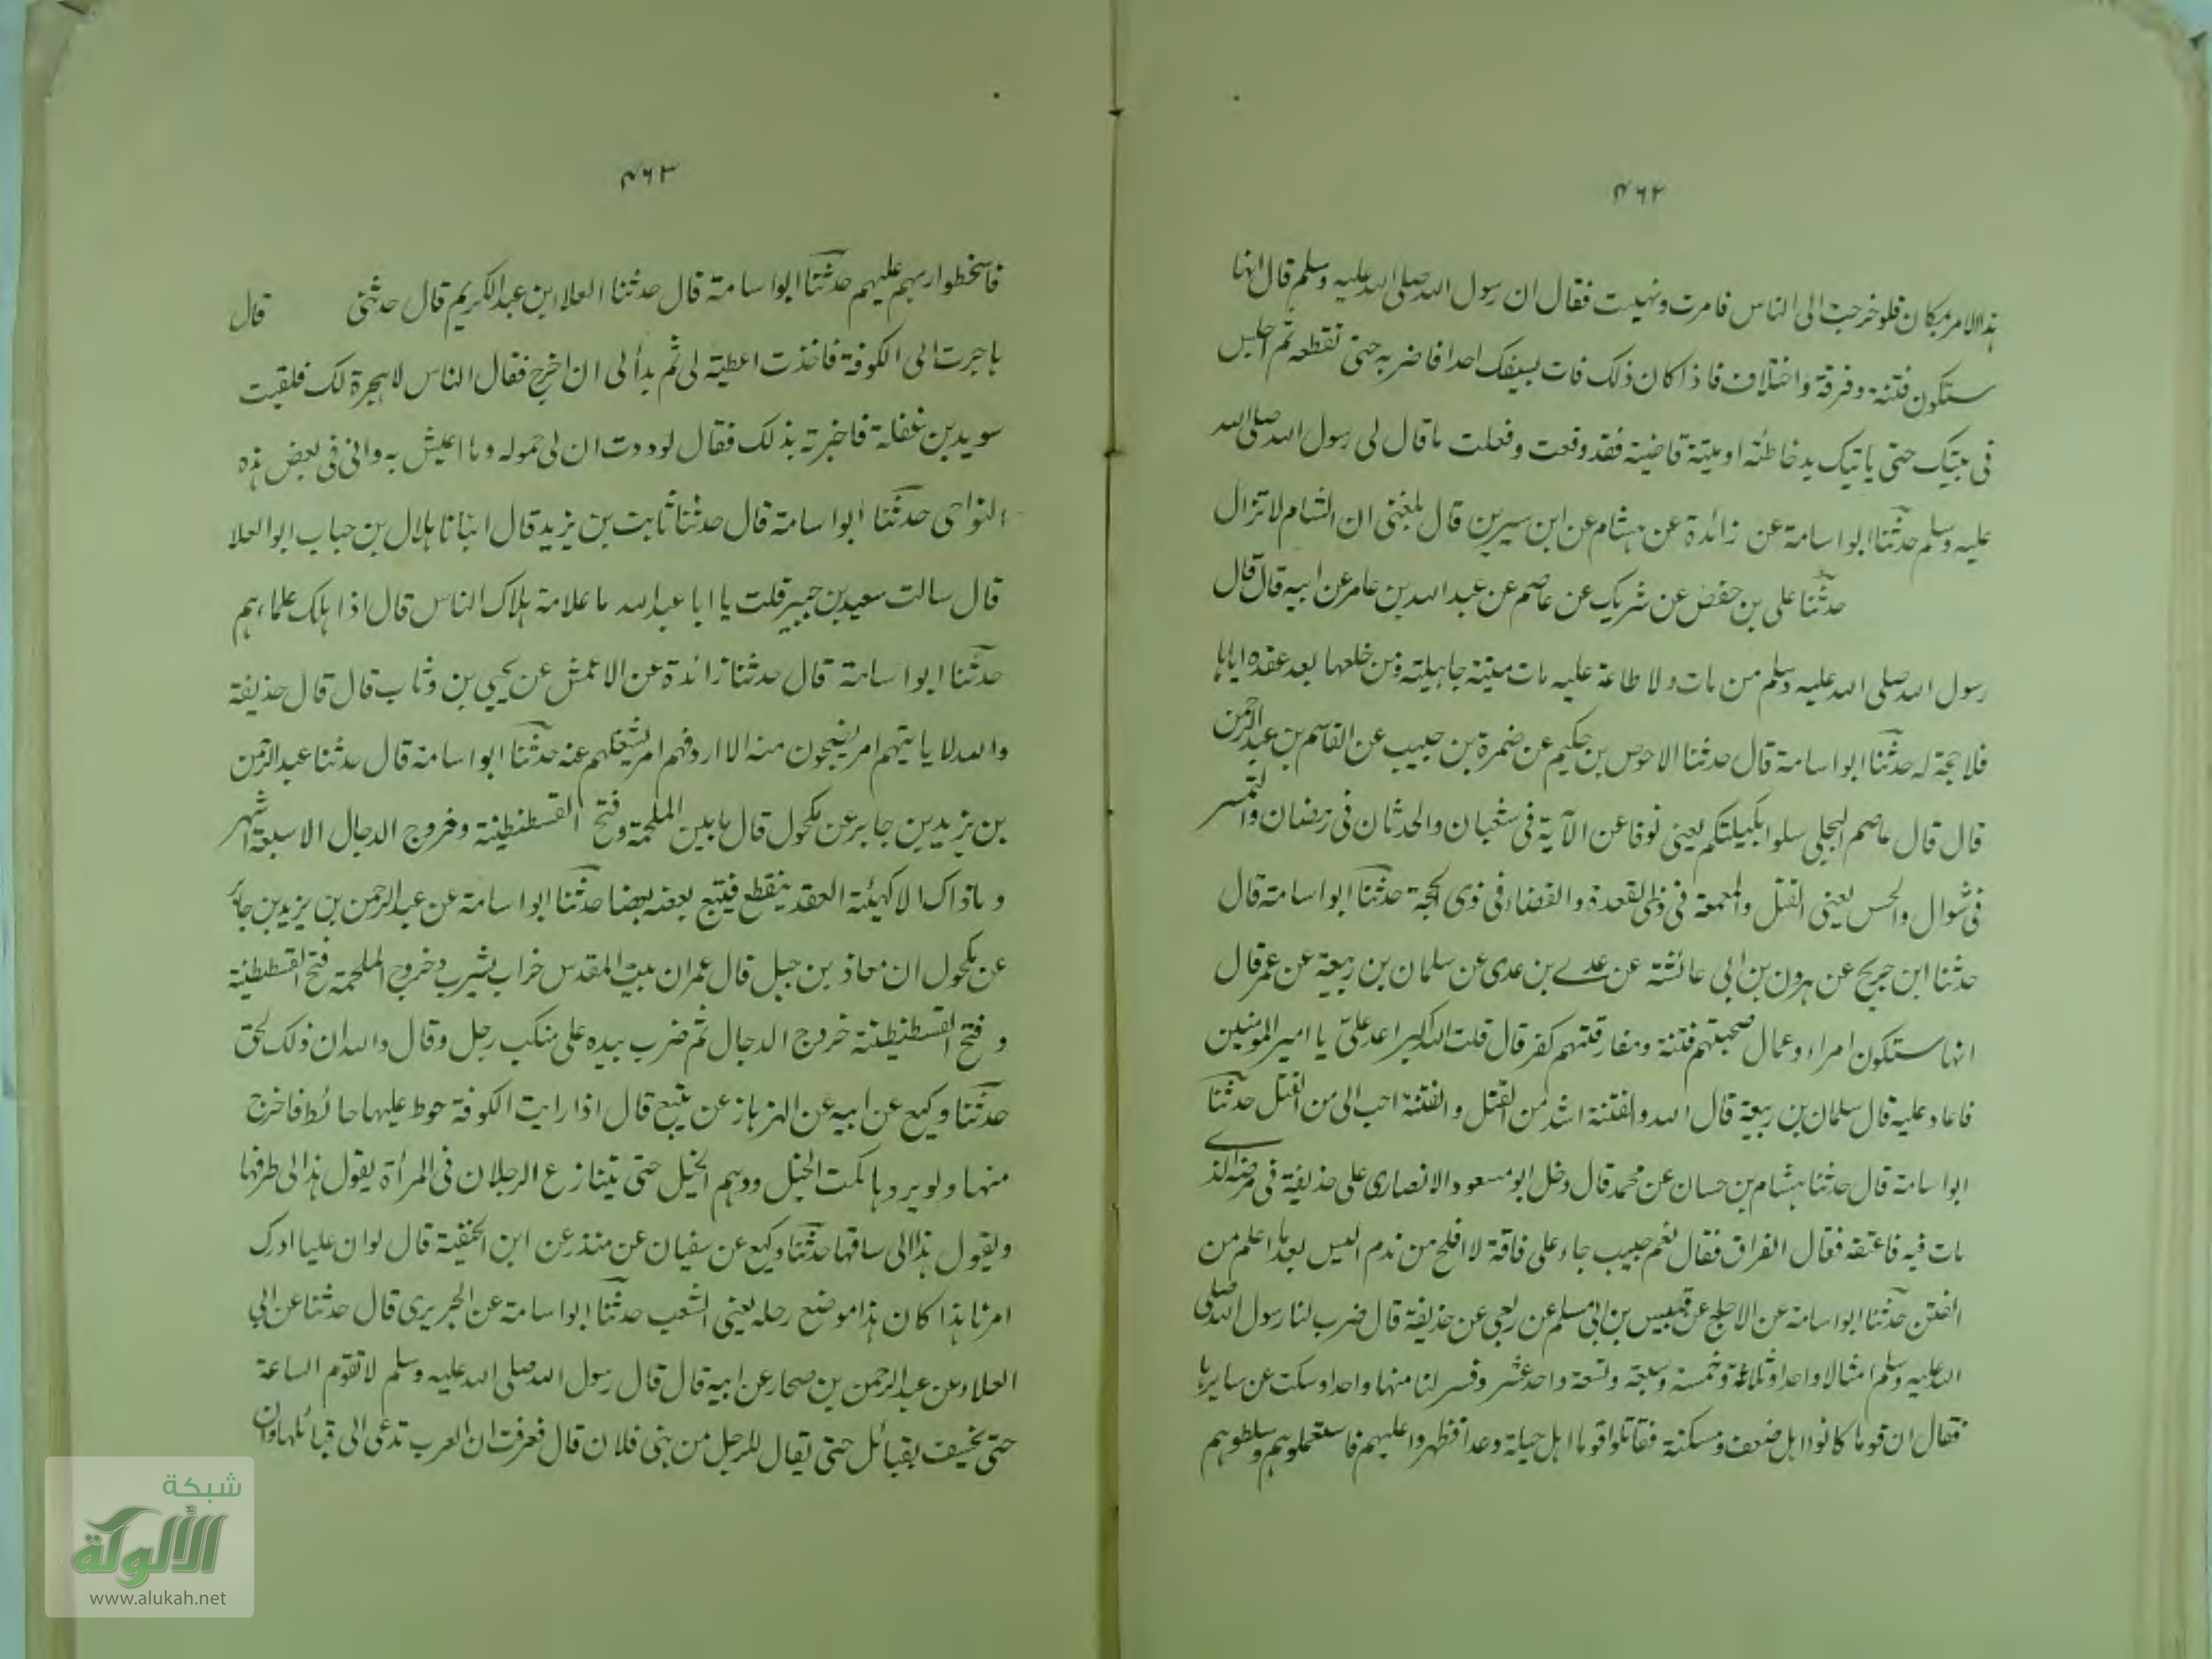 ٤٦٢
هذا الامر بمكان فلو خرجت الى الناس فامرت ونهيت فقال ان رسول الله صلى الله عليه وسلم قال انها
ستكون فتنة وفرقة واختلاف فاذا كان ذلك فات بسيفك احدا فاضربه حتى تقطعه ثم اجلس
فى بيتك حتى ياتيك يد خاطئة او ميتة قاضية فقد وقعت وفعلت ما قال لى رسول الله صلى الله
عليه وسلم حدثنا ابو اسامة عن زائدة عن هشام عن ابن سيرين قال بلغنى ان الشام لا تزال
حدثنا على بن حفص عن شريك عن عاصم عن عبد الله بن عامر عن ابيه قال قال
رسول الله صلى الله عليه وسلم من مات ولا طاعة عليه مات ميتة جاهلية ومن خلعها بعد عقده اياها
فلا حجة له حدثنا ابو اسامة قال حدثنا الاحوص بن حكيم عن ضمرة بن حبيب عن القاسم بن عبد الرحمن
قال قال عاصم البجلى سلوا بكيلتكم يعنى نوفا عن الآية فى شعبان والحدثان فى رمضان والتمييز
فى شوال والحس يعنى القتل والمعمعة فى ذى القعدة والقضاء فى ذى الحجة حدثنا ابو اسامة قال
حدثنا ابن جريج عن هرون بن ابى عائشة عن عدى بن عدى عن سلمان بن ربيعة عن عمر قال
انها ستكون امراء وعمال صحبتهم فتنة ومفارقتهم كفر قال قلت الله اكبر اعد علىّ يا امير المومنين
فاعاد عليه قال سلمان بن ربيعة قال الله والفتنة اشد من القتل والفتنة احب الى من القتل حدثنا
ابو اسامة قال حدثنا هشام بن حسان عن محمد قال دخل ابو مسعود الانصارى على حذيفة فى مرضه الذى
مات فيه فاعتنقه فقال الفراق فقال نعم حبيب جاء على فاقة لا افلح من ندم اليس بعد ما اعلم من
الفتن حدثنا ابو اسامة عن الاجلح عن قيس بن ابى مسلم عن ربعى عن حذيفة قال ضرب لنا رسول الله صلى
الله عليه وسلم امثالا واحدا وثلاثة وخمسة وسبعة وتسعة واحد عشر وفسر لنا منها واحدا وسكت عن سايرها
فقال ان قوما كانوا اهل ضعف ومسكنة فقاتلوا قوما اهل حيلة وعدا فظهروا عليهم فاستعملوهم وسلطوهم
٤٦٣
فاسخطوا ربهم عليهم حدثنا ابو اسامة قال حدثنا العلاء بن عبد الكريم قال حدثنى قال
هاجرت الى الكوفة فاخذت اعطية لى ثم بدأ لى ان اخرج فقال الناس لا هجرة لك فلقيت
سويد بن غفلة فاخبرته بذلك فقال لوددت ان لى حمولة وما اعيش به وانى فى بعض هذه
النواحى حدثنا ابو اسامة قال حدثنا ثابت بن يزيد قال انبانا هلال بن خباب ابو العلا
قال سالت سعيد بن جبير قلت يا ابا عبد الله ما علامة هلاك الناس قال اذا هلك علماءهم
حدثنا ابو اسامة قال حدثنا زائدة عن الاعمش عن يحيى بن وثاب قال قال حذيفة
والله لا ياتيهم امر يضجون منه الا اردفهم امر يشغلهم عنه حدثنا ابو اسامة قال حدثنا عبد الرحمن
بن يزيد بن جابر عن مكحول قال ما بين الملحمة وفتح القسطنطينة وخروج الدجال الا سبعة اشهر
وما ذاك الا كهيئة العقد ينقطع فيتبع بعضه بعضا حدثنا ابو اسامة عن عبد الرحمن بن يزيد بن جابر
عن مكحول ان معاذ بن جبل قال عمران بيت المقدس خراب يثرب وخروج الملحمة فتح القسطنطينة
وفتح القسطنطينة خروج الدجال ثم ضرب بيده على منكب رجل وقال والله ان ذلك لحق
حدثنا وكيع عن ابيه عن الهزهاز عن يثيع قال اذا رايت الكوفة حوط عليها حائط فاخرج
منها ولو يردها كمت الخيل ودهم الخيل حتى يتنازع الرجلان فى المرأة يقول هذا لى طرفها
ويقول هذا لى ساقها حدثنا وكيع عن سفيان عن منذر عن ابن الحنفية قال لو ان عليا ادرك
امرنا هذا كان هذا موضع رحله يعنى الشعب حدثنا ابو اسامة عن الجريرى قال حدثنا عن ابى
العلاء عن عبد الرحمن بن صحار عن ابيه قال قال رسول الله صلى الله عليه وسلم لا تقوم الساعة
حتى يخسف بقبائل حتى يقال للرجل من بنى فلان قال فعرفت ان العرب تدعى الى قبائلها وان
شبكة
الألوكة
www.alukah.net